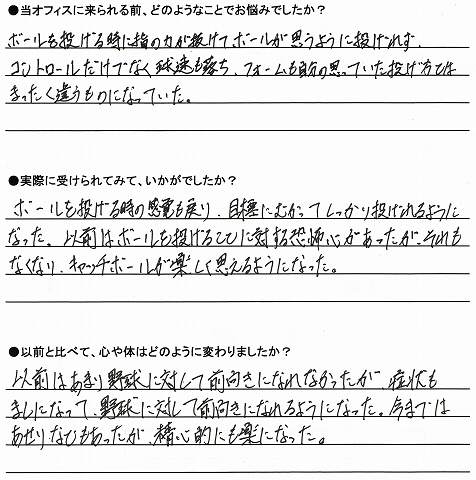 ●当オフィスに来られる前、どのようなことでお悩みでしたか？
ボールを投げる時に指の力が抜けてボールが思うように投げれず、
コントロールだけでなく球速も落ち、フォームも自分の思っていた投げ方とは
まったく違うものになっていた。
●実際に受けられてみて、いかがでしたか？
ボールを投げる時の感覚も戻り、目標にむかってしっかり投げれるように
なった。以前はボールを投げることに対する恐怖心があったが、それも
なくなり、キャッチボールが楽しく思えるようになった。
●以前と比べて、心や体はどのように変わりましたか？
以前はあまり野球に対して前向きになれなかったが、症状も
ましになって、野球に対して前向きになれるようになった。今までは
あせりなどもあったが、精心的にも楽になった。